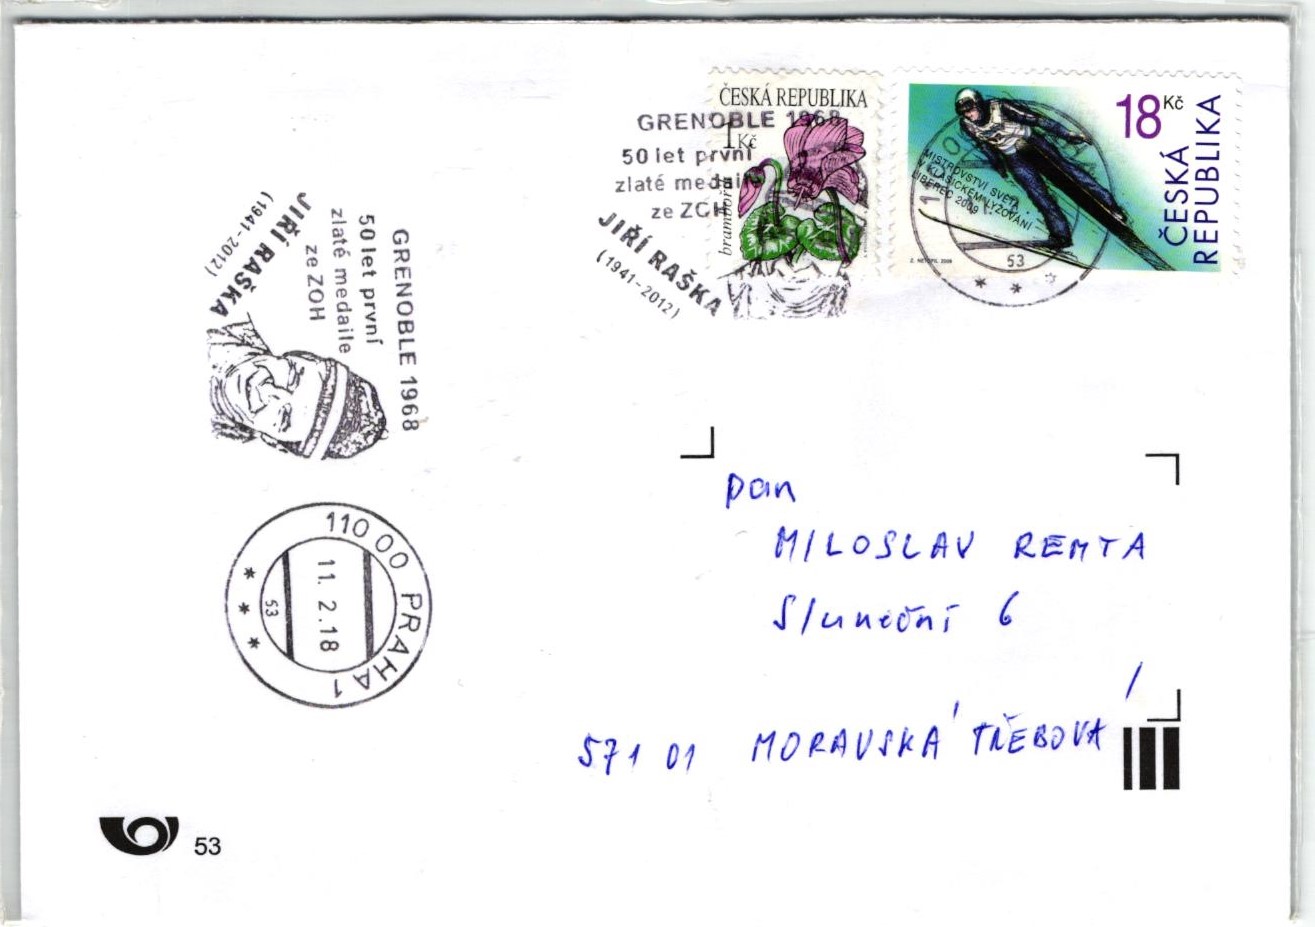 ČESKÁ REPUBLIKA
1 Kč
brambořík
18 Kč
ČESKÁ
REPUBLIKA
MISTROVSTVÍ SVĚTA
V KLASICKÉM LYŽOVÁNÍ
LIBEREC 2009
Z. NETOPIL 2009
53
GRENOBLE 1968
50 let první
zlaté medaile
ze ZOH
JIŘÍ RAŠKA
(1941-2012)
GRENOBLE 1968
50 let první
zlaté medaile
ze ZOH
JIŘÍ RAŠKA
(1941-2012)
110 00 PRAHA 1
11. 2. 18
53
pan
MILOSLAV REMTA
Sluneční 6
571 01 MORAVSKÁ TŘEBOVÁ
53